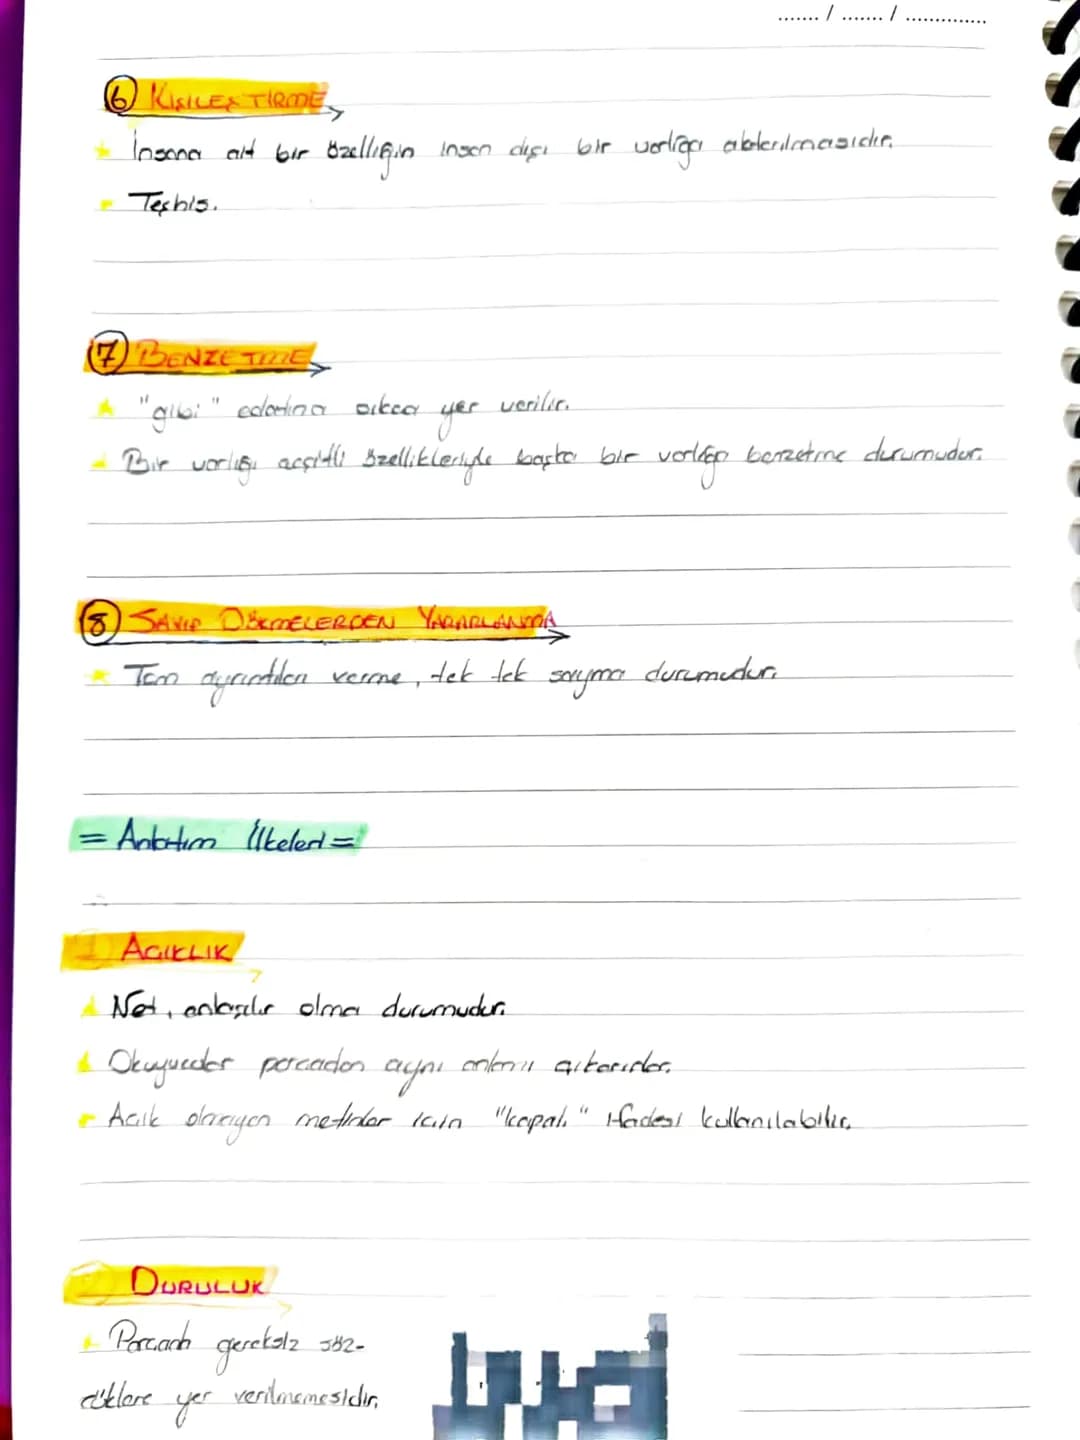 ....... / ....... / ..............
6 KİŞİLEŞTİRME
İnsana ait bir özelliğin insan dışı bir varlığa aktarılmasıdır.
Teşhis.
7 BENZETME
"gibi" edatına sıkça yer verilir.
Bir varlığı çeşitli özellikleriyle başka bir varlığa benzetme durumudur.
8 SAYIP DÖKMELERDEN YARARLANMA
Tüm ayrıntıları verme, tek tek sayma durumudur.
= Anlatım İlkeleri =
1 AÇIKLIK
Net, anlaşılır olma durumudur.
Okuyucular parçadan aynı anlamı çıkarırlar.
Açık olmayan metinler için "kapalı" ifadesi kullanılabilir.
DURULUK
Parçada gereksiz söz-
cüklere yer verilmemesidir.